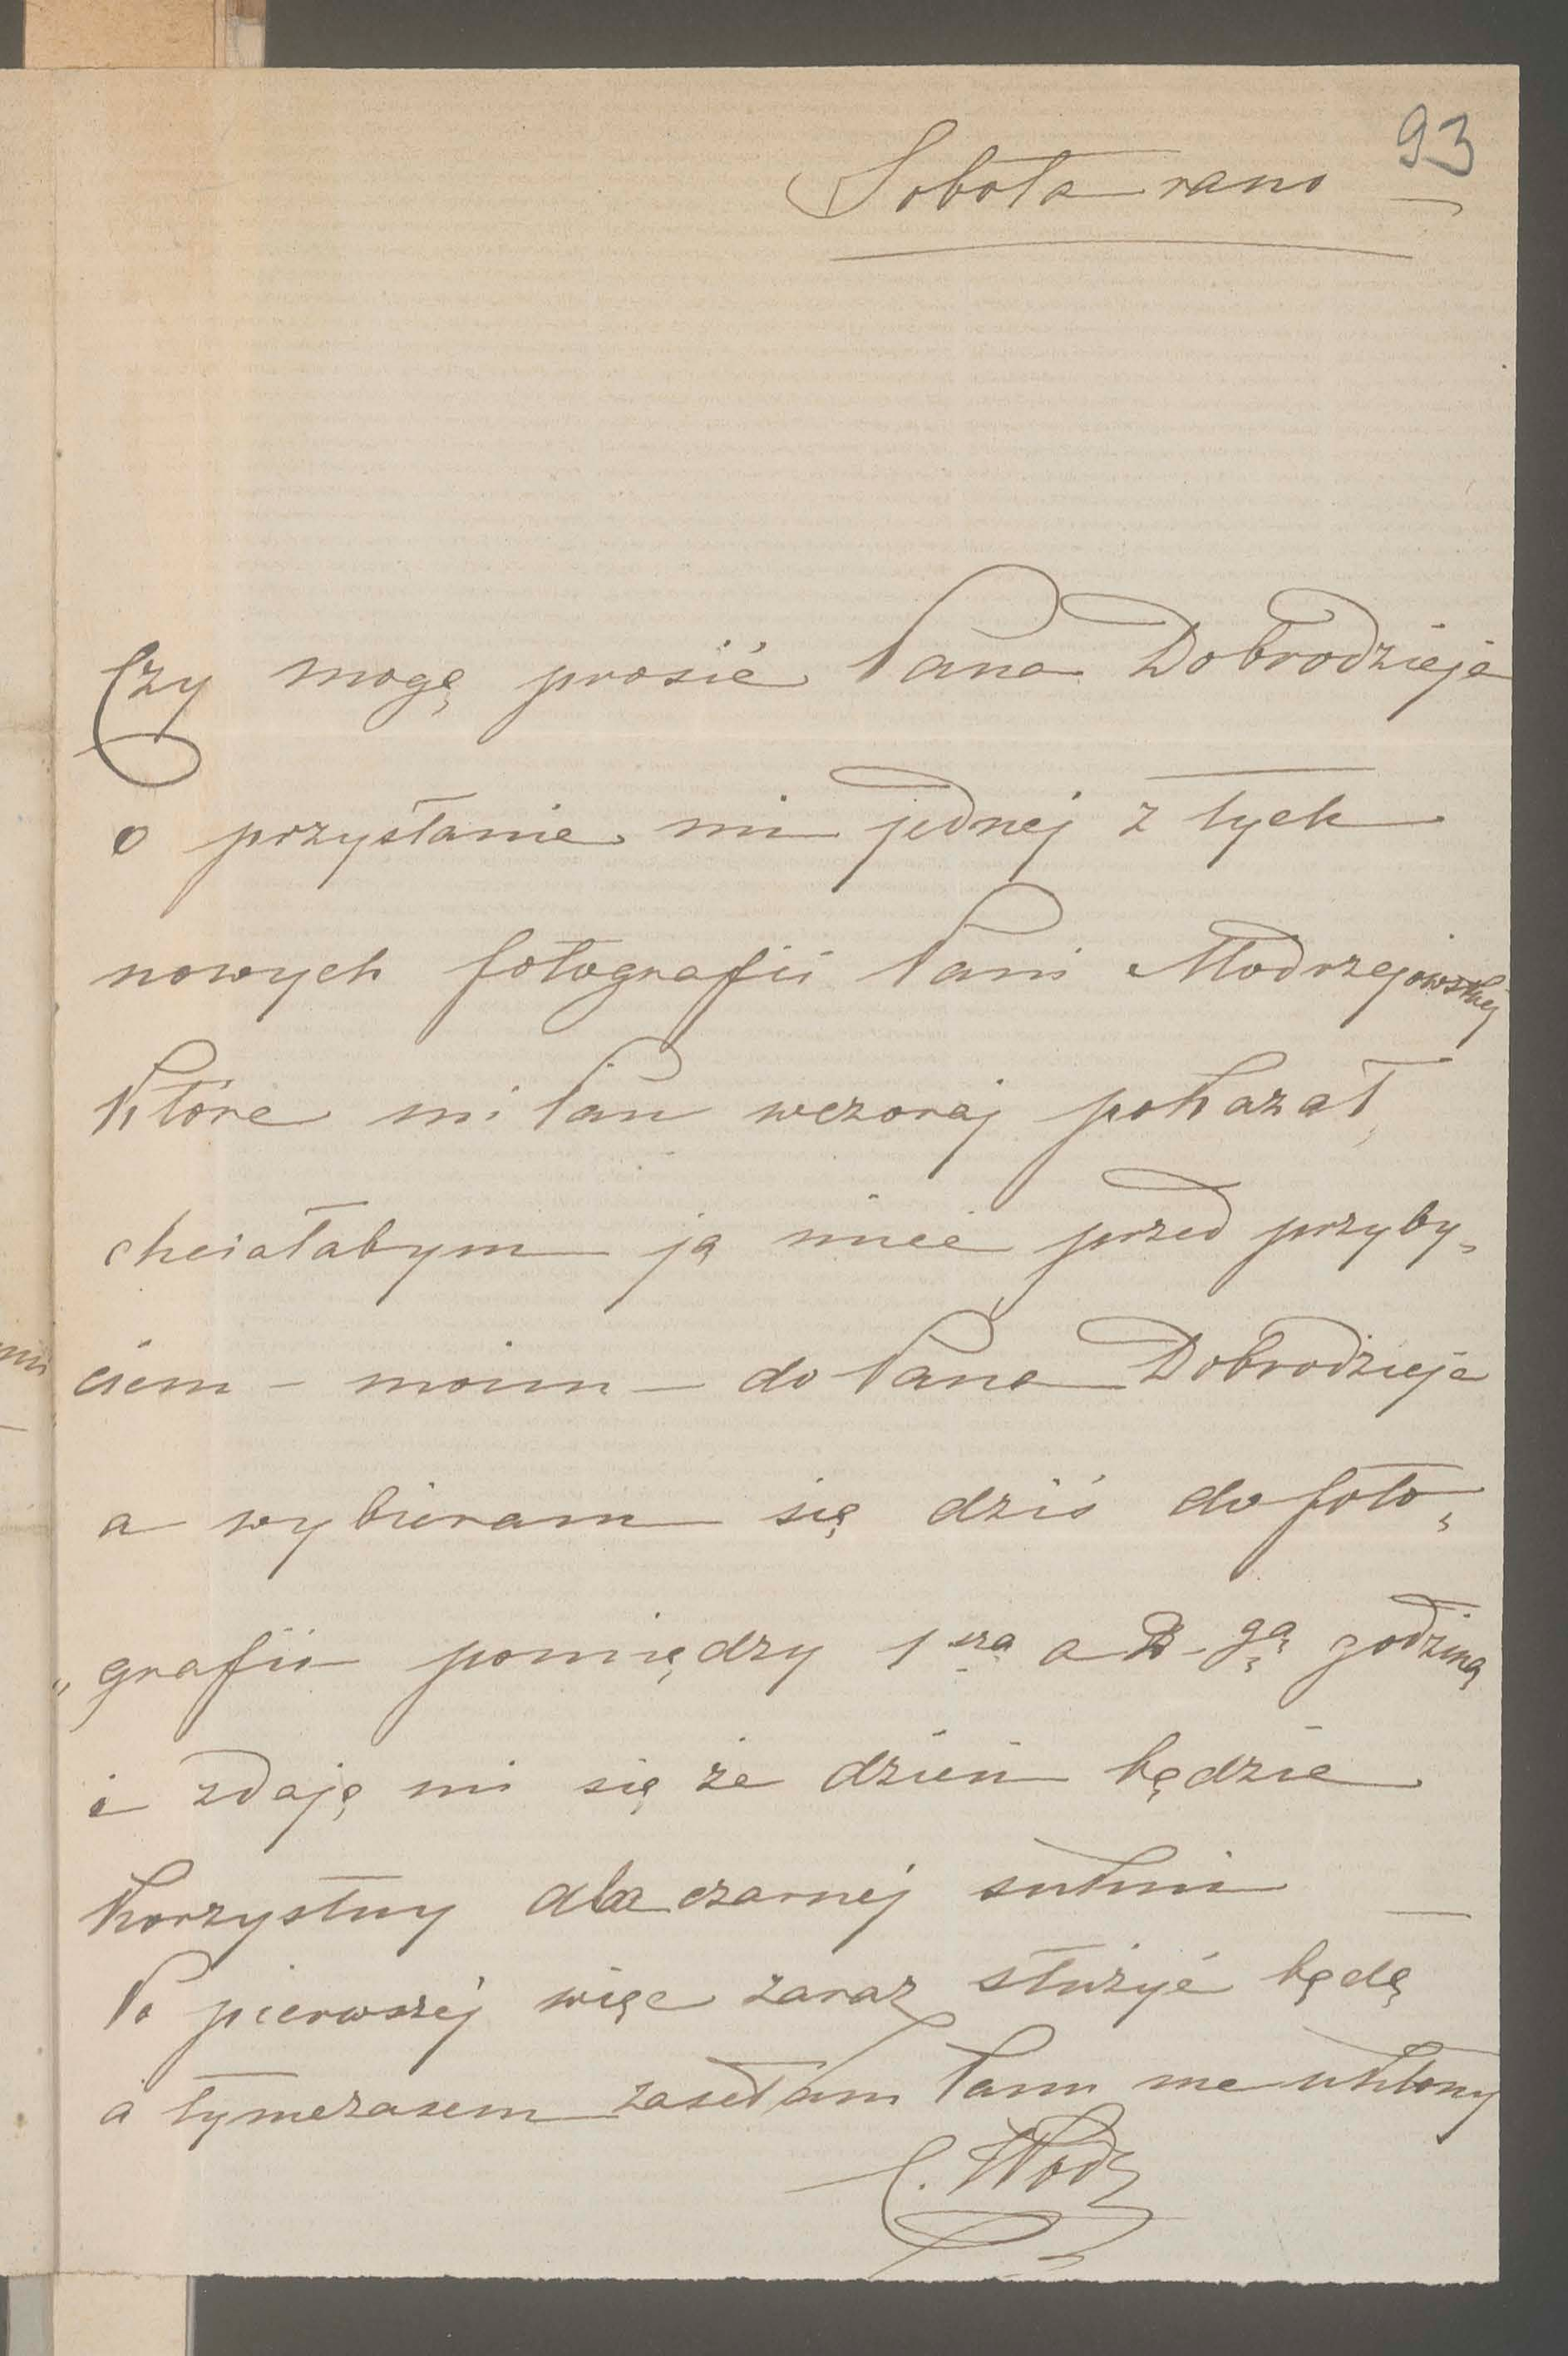 93
Sobota rano
Czy mogę prosić Pana Dobrodzieja
o przysłanie mi jednej z tych
nowych fotografii Pani Modrzejowskiej
które mi Pan wczoraj pokazał,
chciałabym ją mieć przed przyby„
ciem - moim - do Pana Dobrodzieja
a wybieram się dziś do foto„
„grafii pomiędzy 1szą a 2-gą godziną
i zdaję mi się że dzień będzie
korzystny dla czarnej sukni —
Po pierwszej więc zaraz służyć będę
a tymczasem zasełam Panu me ukłony
C. Wodz